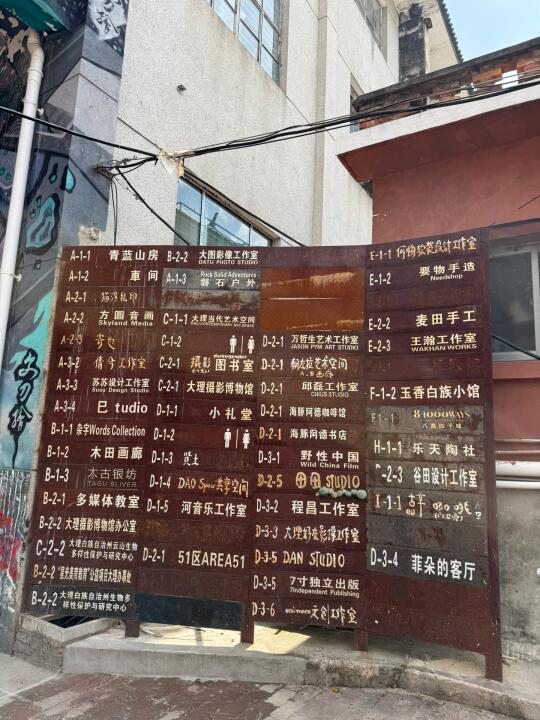 A-1-1 青蓝山房
A-1-2 车间
A-2-1 猫浮乱印
A-2-2 方圆音画
Skyland Media
A-2-3
A-3-2 倩兮工作室
A-3-3 苏苏设计工作室
Susu Design Studio
A-3-4 巳 tudio
B-1-1 杂字Words Collection
B-1-2 木田画廊
B-1-3 太古银坊
TAGU SLIVER
B-2-1 多媒体教室
B-2-2 大理摄影博物馆办公室
C-2-2 大理白族自治州云山生物
多样性保护与研究中心
B-2-2 "星光美育教育"公益项目大理办事处
B-2-2 大理白族自治州生物多
样性保护与研究中心
B-2-2 大图影像工作室
DATU PHOTO STUDIO
A-1-3 Rock Solid Adventures
磐石户外
C-1-1 大理当代艺术空间
CONTEMPORARY ART SPACE
C-1-2
C-2-1 摄影图书室
C-2-1 大理摄影博物馆
D-1-1 小礼堂
D-1-2
D-1-3
D-1-4 DAO Space共享空间
D-1-5 河音乐工作室
D-2-1 51区AREA51
D-2-1 万哲生艺术工作室
JASON PYM ART STUDIO
D-2-1
D-2-1 邱磊工作室
CHIUS STUDIO
D-2-1 海豚阿德咖啡馆
D-2-1 海豚阿德书店
D-3-1 野性中国
Wild China Film
D-2-5 田田 STUDIO
D-3-2 程昌工作室
D-3-3 大理好在影像工作室
D-3-5 DAN STUDIO
D-3-5 7寸独立出版
7Independent Publishing
D-3-6 文创工作室
E-1-1 何物软装设计工作室
E-1-2 要物手造
Needshop
E-2-2 麦田手工
E-2-3 王瀚工作室
WAKHAN WORKS
F-1-2 玉香白族小馆
F-1-1 84000WAYS
八萬四千味
H-1-1 乐天陶社
C-2-3 谷田设计工作室
I-1-1
D-3-4 菲朵的客厅